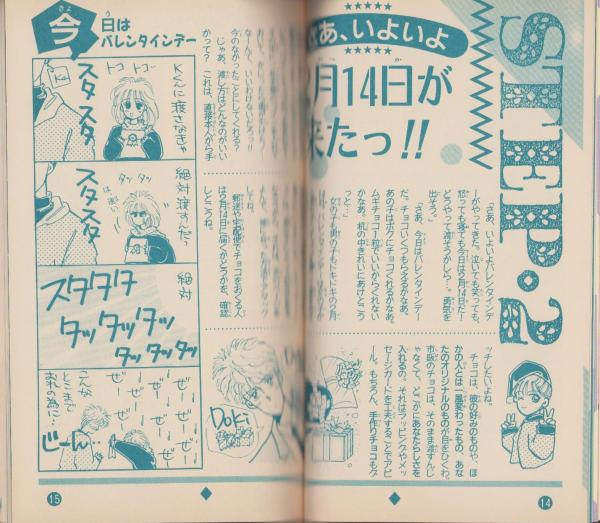 STEP・2
さあ、いよいよ
月14日が
来たっ!!
「さあ、いよいよバレンタインデ
ーがやってきた。泣いても笑っても、
怒っても寝ても今日は2月14日だ!
どうやって渡そうかしら…。勇気を
出そう」
「さあ、今日はバレンタインデー
だ。チョコいくつもらえるかなあ。
あの子はボクにチョコくれるかなあ。
ムギチョコ1粒でいいからくれない
かなあ。机の中きれいにあけとこう
っと…」
女の子も男の子もドキドキの2月
ッチしたいよね。
チョコは、彼の好みのものや、ほ
かの人とは一風変わったもの、あな
たのオリジナルのものが目をひくわ。
市販のチョコは、そのまま渡すんじ
ゃなくて、どこかにあなたらしさを
入れるの。それはラッピングやメッ
セージカードを工夫することでアピ
ール。もちろん、手作りチョコもグ
14
なんて、いいわけないだろ!!
今のなかったことにしてくれる?
じゃあ、渡し方はどんなのがいい
かって?これは、直接本人から手
しでね。
郵送や宅配便でチョコをおくる人
は2月14日に届くかどうかを、確認
しとこうね。
Doki
今日は
バレンタインデー
Kくん
トコトコ…
Kくんに渡さなきゃ
スタスタ
絶対渡すんだっ
タッタッ
はやい
スタスタ
絶対
スタタタ
タッタッタッ
タッタッタッ
ぜーぜー
ぜーぜー
ぜーぜー
こんな
とこまで
おれの為に…
じーん…
15